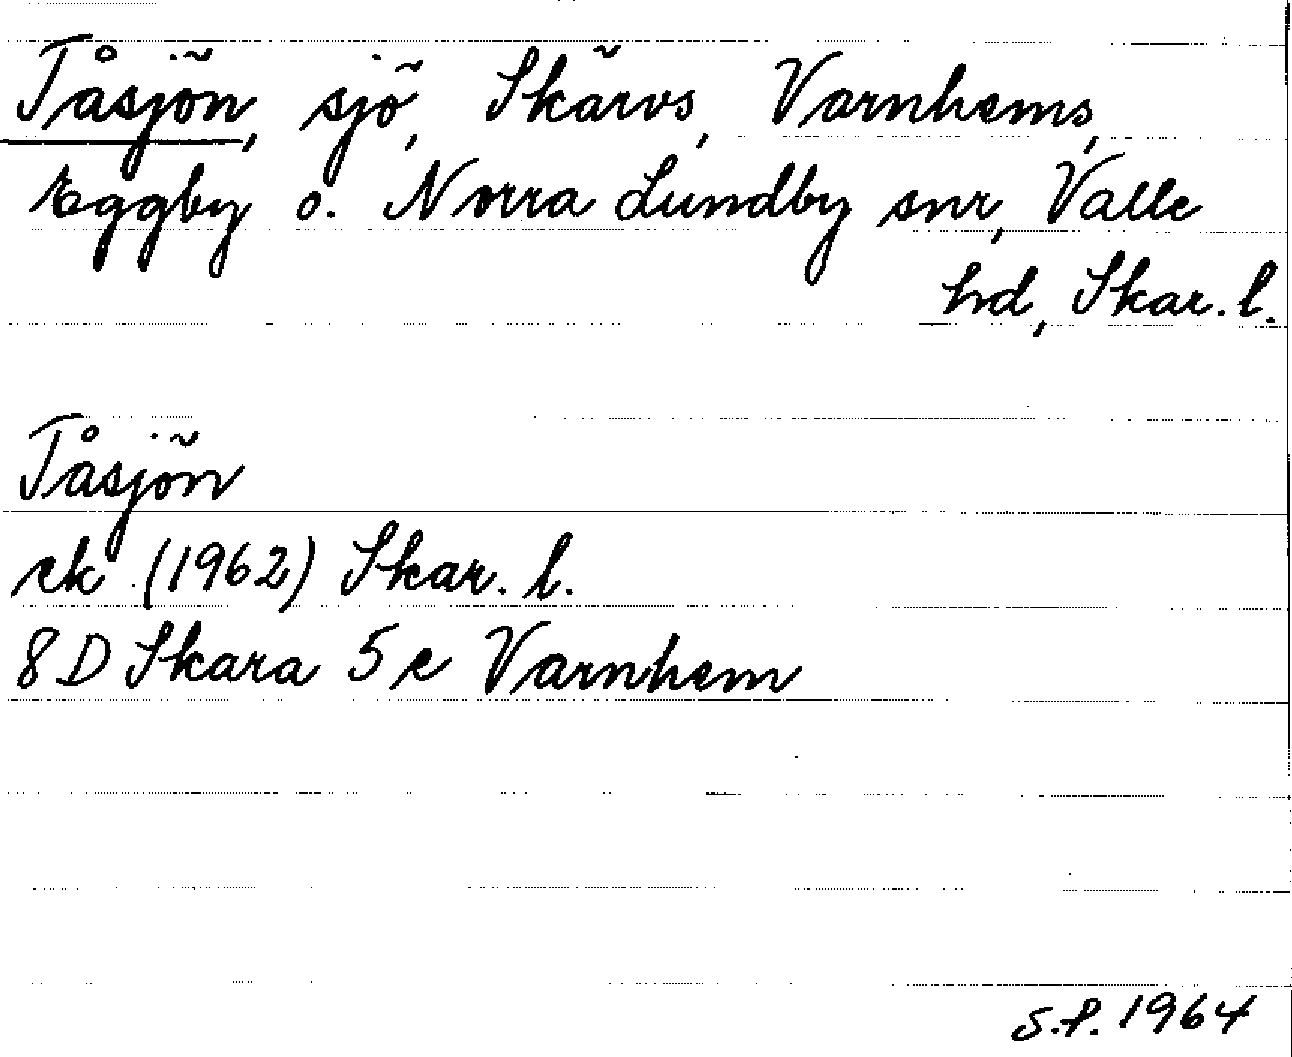 Tåsjön, sjö, Skärvs, Varnhems,
Eggby o. Norra Lundby snr, Valle
hd, Skar. l.
Tåsjön
ek (1962) Skar. l.
8 D Skara 5 e Varnhem
S.F. 1964